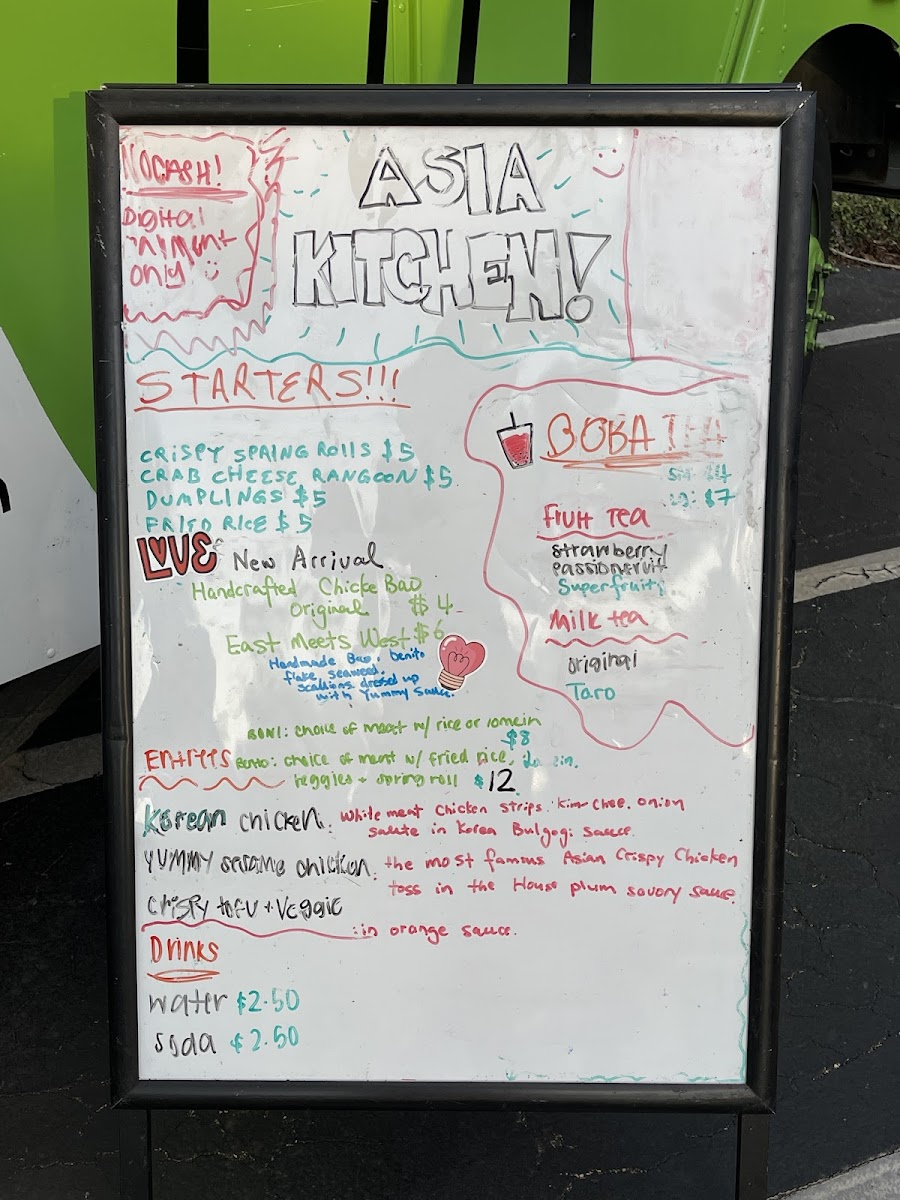 NO CASH!
Digital
Payment
only
ASIA
KITCHEN!
STARTERS!!!
CRISPY SPRING ROLLS $5
CRAB CHEESE RANGOON $5
DUMPLINGS $5
FRIED RICE $5
LOVE
New Arrival
Handcrafted Chicke Bao
Original $4
East Meets West $6
Handmade Bao, benito
flake, seaweed,
scallions dressed up
with Yummy Sauce.
BOBA TEA
SM: $4
LG: $7
Fruit Tea
Strawberry
Passionfruit
Superfruit
Milk tea
original
Taro
BOWL: choice of meat w/ rice or lomein
$8
Entrees
BENTO: choice of meat w/ fried rice,
veggies + spring roll $12
Korean chicken: white meat chicken strips. kim chee. onion
saute in Korea Bulgogi sauce.
YUMMY sesame chicken: the most famous Asian Crispy Chicken
toss in the House plum savory sauce.
crispy tofu + veggie
: in orange sauce.
Drinks
water $2.50
soda $2.50